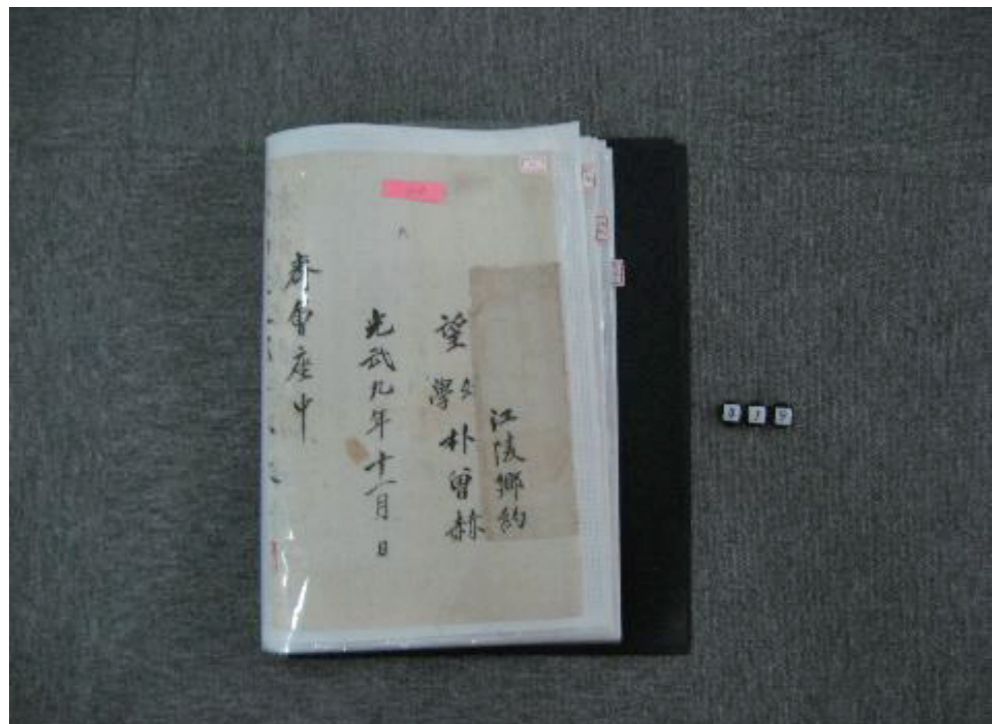 江陵鄉約
望
學 朴曾赫
光武九年十一月 日
春會座中
319